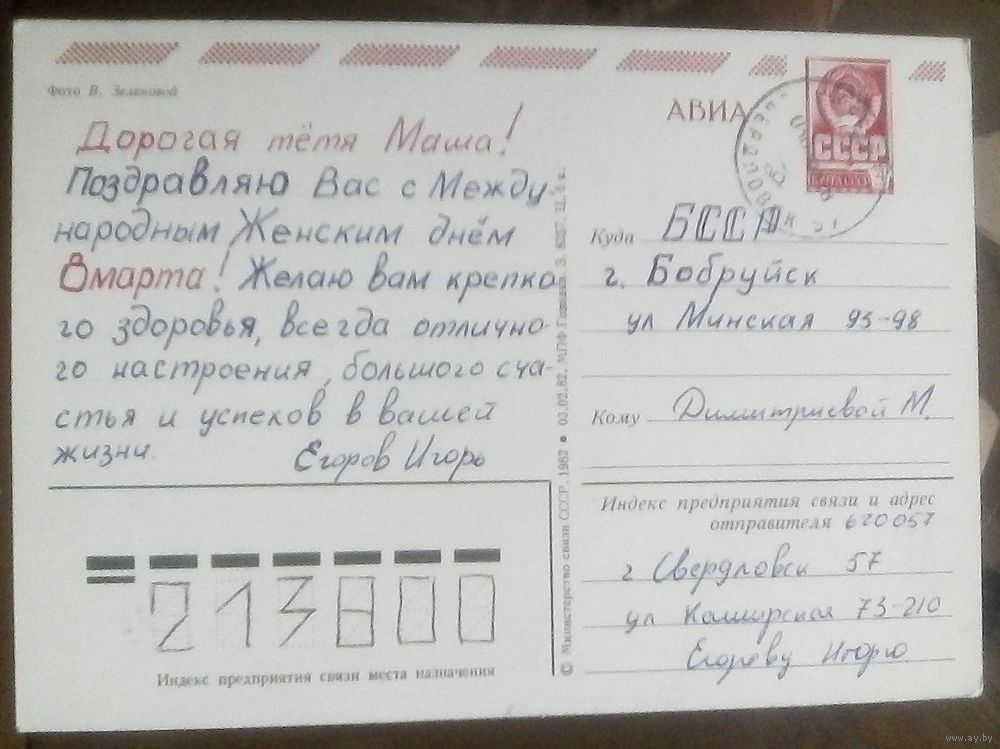 Фото В. Зеленовой
АВИА
СССР
Дорогая тётя Маша!
Поздравляю Вас с Между
народным Женским днём
8 марта! Желаю вам крепко-
го здоровья, всегда отлично-
го настроения, большого сча-
стья и успехов в вашей
жизни.
Егоров Игорь
Куда БССР
г. Бобруйск
ул Минская 95-98
Кому Димитриевой М.
Индекс предприятия связи и адрес
отправителя 620057
г Свердловск 57
ул Каширская 73-210
Егорову Игорю
213800
Индекс предприятия связи места назначения
© Министерство связи СССР, 1982 ● 03.02.82. МПФ Гознака. З. 6037. Ц. 6 к.
www.ay.by